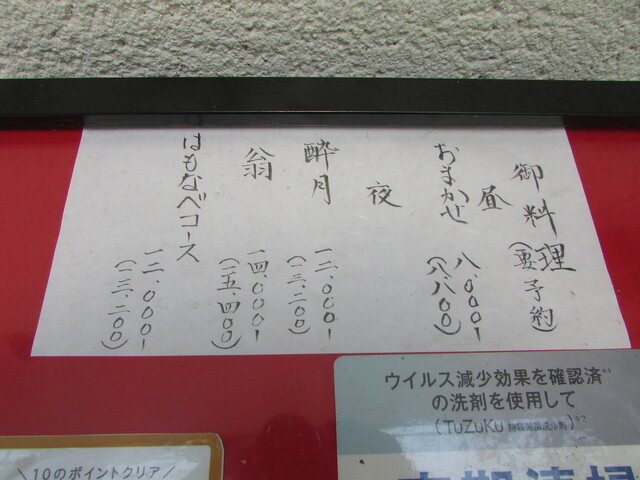 御料理(要予約)
昼
おまかせ 八、000-
(八、八00)
夜
酔月 一二、000-
(一三、二00)
翁 一四、000-
(一五、四00)
はもなべコース 一二、000-
(一三、二00)
ウイルス減少効果を確認済※1
の洗剤を使用して
(TuZuKu
10のポイントクリア